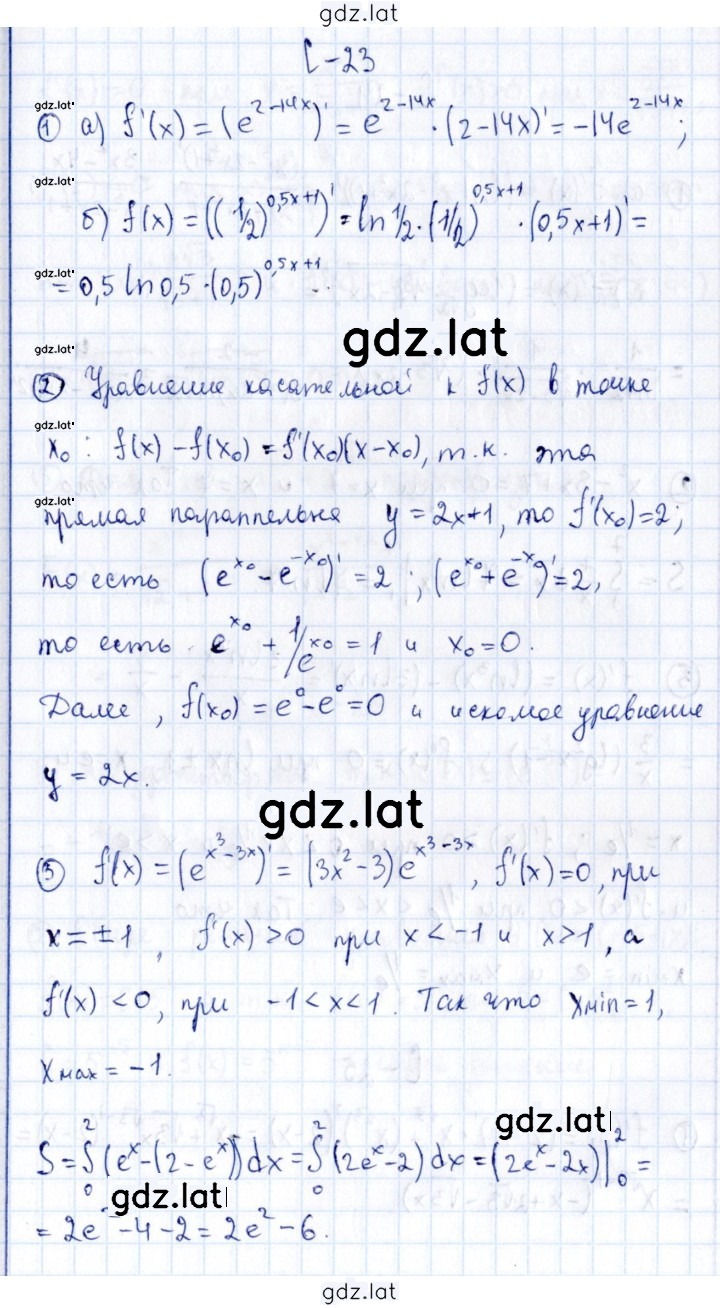 gdz.lat
С-23
gdz.lat
① а) f'(x) = (e^{2-14x})' = e^{2-14x} · (2-14x)' = -14e^{2-14x};
gdz.lat
б) f(x) = ((1/2)^{0,5x+1})' = ln 1/2 · (1/2)^{0,5x+1} · (0,5x+1)' =
gdz.lat
= 0,5 ln 0,5 · (0,5)^{0,5x+1}.
gdz.lat
gdz.lat
② Уравнение касательной к f(x) в точке
gdz.lat
x₀ : f(x) - f(x₀) = f'(x₀)(x-x₀), т.к. эта
gdz.lat
прямая параллельна y = 2x+1, то f'(x₀)=2;
то есть (e^{x₀} - e^{-x₀})' = 2 ; (e^{x₀} + e^{-x₀})' = 2,
то есть e^{x₀} + 1/e^{x₀} = 1 и x₀ = 0.
Далее, f(x₀) = e⁰ - e⁰ = 0 и искомое уравнение
y = 2x.
gdz.lat
⑤ f'(x) = (e^{x³-3x})' = (3x²-3)e^{x³-3x}, f'(x)=0, при
x = ±1, f'(x) > 0 при x < -1 и x > 1, а
f'(x) < 0, при -1 < x < 1. Так что xmin = 1,
xмах = -1.
gdz.lat
S = ∫₀² (e^x - (2 - e^x)) dx = ∫₀² (2e^x - 2) dx = (2e^x - 2x)|₀² =
gdz.lat
= 2e - 4 - 2 = 2e² - 6.
gdz.lat